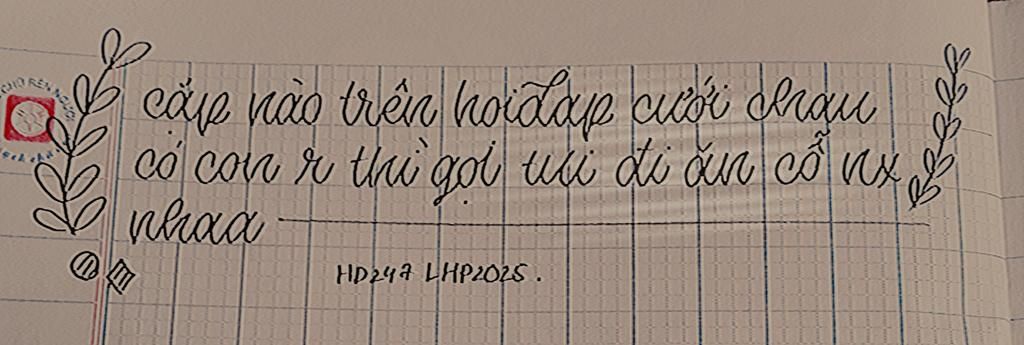 cặp nào trên hoidap cưới nhau
có con r thì gọi tui đi ăn cỗ nx
nhaa
HD247 LHP2025.